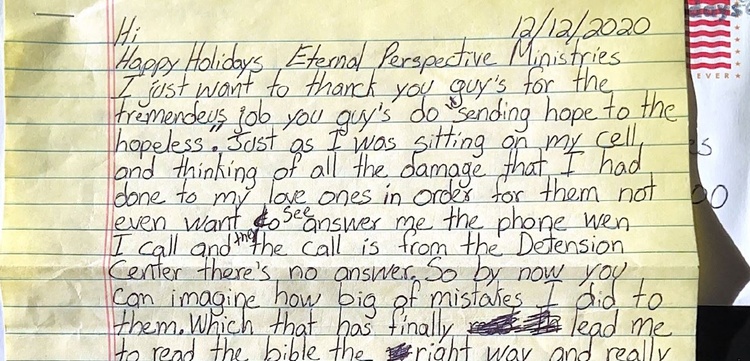 days
Hi 12/12/2020
Happy Holidays Eternal Perspective Ministries
I just want to thanck you guy's for the
tremendeus job you guy's do sending hope to the
hopeless. Just as I was sitting on my cell,
and thinking of all the damage that I had
done to my love ones in order for them not
even want to see answer me the phone wen
I call and they the call is from the Detension
Center there's no answer. So by now you
can imagine how big of mistakes I did to
them. Which that has finally lead me
to read the bible the right way and really
EVER